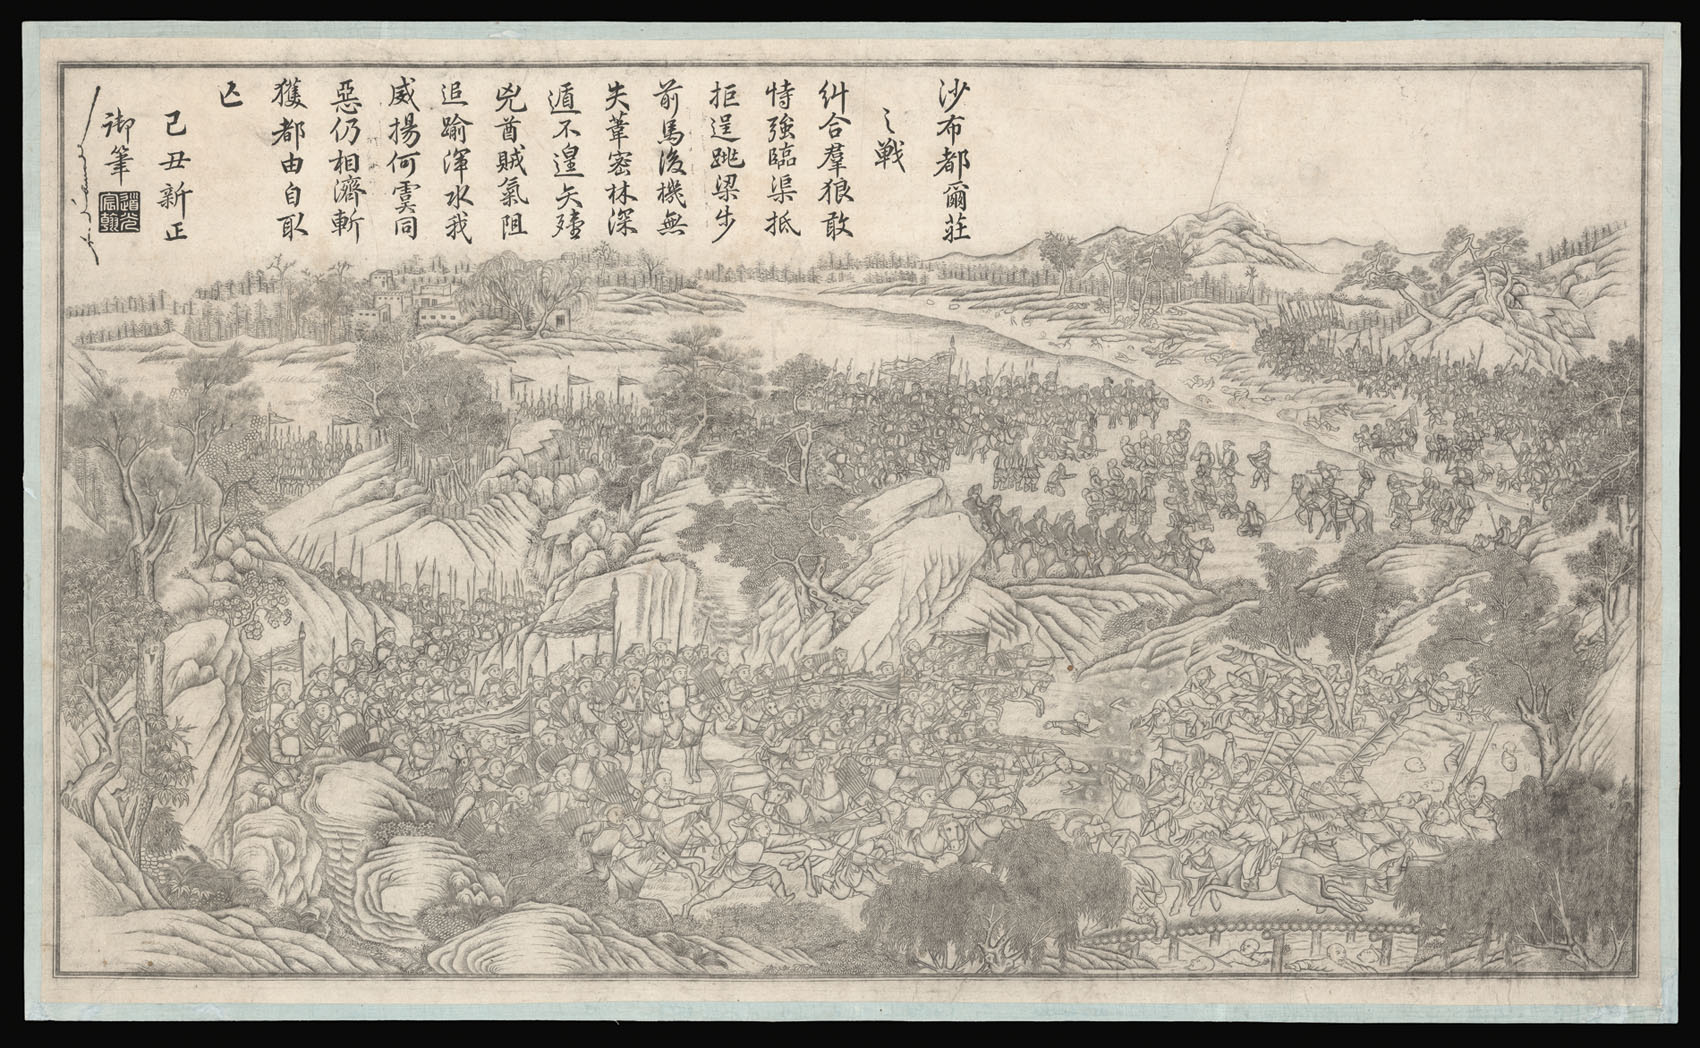 沙布都爾莊
之戰
糾合羣狼敢
恃強臨渠抵
拒逞跳梁步
前馬後機無
失葦密林深
遁不遑矢殪
兇酋賊氣阻
追踰渾水我
威揚何異同
惡仍相濟斬
獲都由自取
亾
己丑新正
御筆
道光
宸翰